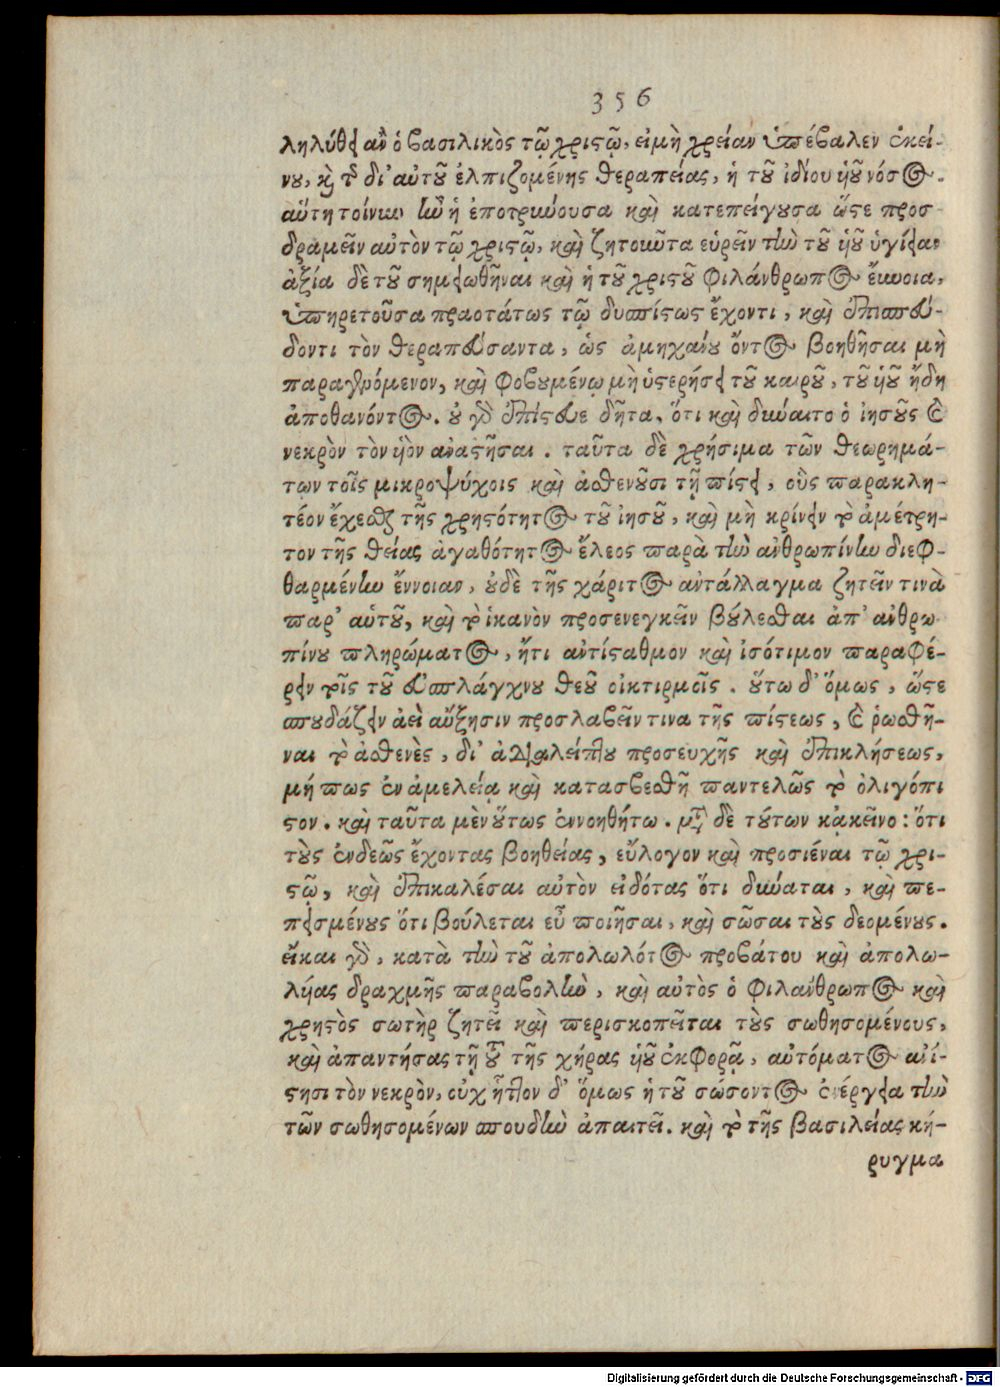 356
ληλύθει ἂν ὁ βασιλικὸς τῷ χριστῷ, εἰ μὴ χρείαν ὑπέβαλεν ἐκεί-
νου, καὶ τῆς δι' αὐτοῦ ἐλπιζομένης θεραπείας, ἡ τοῦ ἰδίου υἱοῦ νόσος.
αὕτη τοίνυν ἦν ἡ ἐποτρύνουσα καὶ κατεπείγουσα ὥστε προσ
δραμεῖν αὐτὸν τῷ χριστῷ, καὶ ζητοῦντα εὑρεῖν τὴν τοῦ υἱοῦ ὑγίειαν
ἀξία δὲ τοῦ σημειωθῆναι καὶ ἡ τοῦ χριστοῦ φιλάνθρωπος ἔννοια,
ὑπηρετοῦσα πραοτάτως τῷ δυσπίστως ἔχοντι, καὶ ἐπισπεύ-
δοντι τὸν θεραπεύσαντα, ὡς ἀμηχάνου ὄντος βοηθῆσαι μὴ
παραγενόμενον, καὶ φοβουμένῳ μὴ ὑστερήσει τοῦ καιροῦ, τοῦ υἱοῦ ἤδη
ἀποθανόντος. οὐ γὰρ ἐπίστευε δῆτα, ὅτι καὶ δύναιτο ὁ ἰησοῦς καὶ
νεκρὸν τὸν υἱὸν ἀναστῆσαι. ταῦτα δὲ χρήσιμα τῶν θεωρημά-
των τοῖς μικροψύχοις καὶ ἀσθενοῦσι τῇ πίστει, οὓς παρακλη-
τέον ἔχεσθαι τῆς χρηστότητος τοῦ ἰησοῦ, καὶ μὴ κρίνειν τὸ ἀμέτρη-
τον τῆς θείας ἀγαθότητος ἔλεος παρὰ τὴν ἀνθρωπίνην διεφ-
θαρμένην ἔννοιαν, οὐδὲ τῆς χάριτος ἀντάλλαγμα ζητεῖν τινὰ
παρ' αὑτοῦ, καὶ τὸ ἱκανὸν προσενεγκεῖν βούλεσθαι ἀπ' ἀνθρω
πίνου πληρώματος, ἤτι ἀντίσταθμον καὶ ἰσότιμον παραφέ-
ρειν τοῖς τοῦ εὐσπλάγχνου θεοῦ οἰκτιρμοῖς. οὕτω δ' ὅμως, ὥστε
σπουδάζειν ἀεὶ αὔξησιν προσλαβεῖν τινα τῆς πίστεως, καὶ ῥωσθῆ-
ναι τὸ ἀσθενὲς, δι' ἀδιαλείπτου προσευχῆς καὶ ἐπικλήσεως,
μήπως ἐν ἀμελείᾳ καὶ κατασβεσθῇ παντελῶς τὸ ὀλιγόπι
στον. καὶ ταῦτα μὲν οὕτως ἐννοηθήτω. μετὰ δὲ τούτων κἀκεῖνο: ὅτι
τοὺς ἐνδεῶς ἔχοντας βοηθείας, εὔλογον καὶ προσιέναι τῷ χρι-
στῷ, καὶ ἐπικαλέσαι αὐτὸν εἰδότας ὅτι δύναται, καὶ πε-
πεισμένους ὅτι βούλεται εὖ ποιῆσαι, καὶ σῶσαι τοὺς δεομένους.
εἴκαι γὰρ, κατὰ τὴν τοῦ ἀπολωλότος προβάτου καὶ ἀπολω-
λυίας δραχμῆς παραβολὴν, καὶ αὐτὸς ὁ φιλάνθρωπος καὶ
χρηστὸς σωτὴρ ζητεῖ καὶ περισκοπεῖται τοὺς σωθησομένους,
καὶ ἀπαντήσας τῇ τοῦ τῆς χήρας υἱοῦ ἐκφορᾷ, αὐτόματος ἀνί-
στησι τὸν νεκρὸν, οὐχ ἧττον δ' ὅμως ἡ τοῦ σώσοντος ἐνέργεια τὴν
τῶν σωθησομένων σπουδὴν ἀπαιτεῖ. καὶ τὸ τῆς βασιλείας κή-
ρυγμα
Digitalisierung gefördert durch die Deutsche Forschungsgemeinschaft - DFG